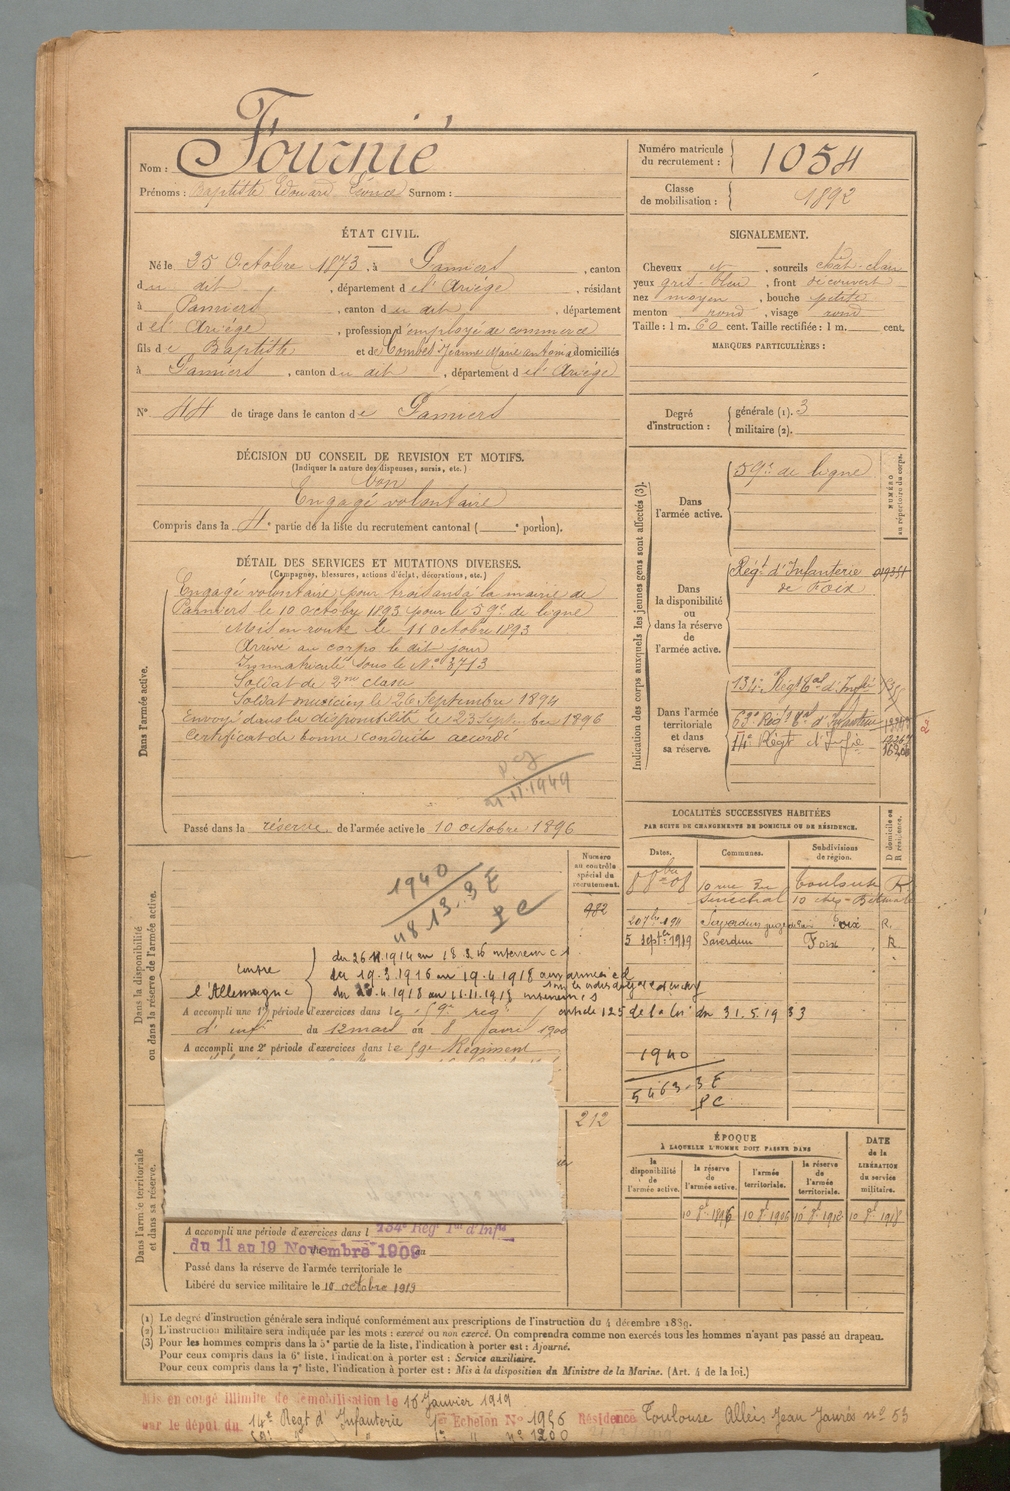 Nom : Fournié
Prénoms : Baptiste Edouard Léonce Surnom :
Numéro matricule du recrutement : 1054
Classe de mobilisation : 1892
ÉTAT CIVIL.
Né le 25 Octobre 1873, à Pamiers, canton
du dit, département de l'Ariège, résidant
à Pamiers, canton du dit, département
de l'Ariège, profession d'employé de commerce
fils de Baptiste et de Combes Jeanne Marie Antonia domiciliés
à Pamiers, canton du dit, département de l'Ariège
N° 44 de tirage dans le canton de Pamiers
SIGNALEMENT.
Cheveux et, sourcils chât-clair
yeux gris-bleu, front découvert
nez moyen, bouche petite
menton rond, visage rond
Taille : 1 m. 60 cent. Taille rectifiée : 1 m. cent.
MARQUES PARTICULIÈRES :
Degré d'instruction : générale (1). 3
militaire (2).
DÉCISION DU CONSEIL DE REVISION ET MOTIFS.
(Indiquer la nature des dispenses, sursis, etc.)
bon
Engagé volontaire
Compris dans la 4e partie de la liste du recrutement cantonal ( e portion).
DÉTAIL DES SERVICES ET MUTATIONS DIVERSES.
(Campagnes, blessures, actions d'éclat, décorations, etc.)
Dans l'armée active.
Engagé volontaire pour trois ans à la mairie de
Pamiers le 10 octobre 1893 pour le 59e de ligne
Mis en route le 11 octobre 1893
Arrivé au corps le dit jour
Immatriculé sous le N° 3713
Soldat de 2me classe
Soldat musicien le 26 Septembre 1894
Envoyé dans la disponibilité le 23 Septembre 1896
Certificat de bonne conduite accordé
21.11.1949
Passé dans la réserve de l'armée active le 10 octobre 1896
Indication des corps auxquels les jeunes gens sont affectés (3).
NUMÉRO au répertoire du corps.
Dans l'armée active.
59e de ligne
Dans la disponibilité ou dans la réserve de l'armée active.
Régt d'Infanterie
de Foix
Dans l'armée territoriale et dans sa réserve.
134e Régt Tal d'Infie
63e Régt Tal d'Infanterie
14e Régt d'Infie
2
LOCALITÉS SUCCESSIVES HABITÉES
PAR SUITE DE CHANGEMENTS DE DOMICILE OU DE RÉSIDENCE.
Dates. Communes. Subdivisions de région. D domicile ou R résidence.
8 8bre 08 10 rue du Sénéchal Toulouse R
20 7bre 1911 Saverdun Foix R.
5 septbre 1919 Saverdun Foix R
Dans la disponibilité ou dans la réserve de l'armée active.
Numéro au contrôle spécial du recrutement.
482
1940
4813.3E
PC
contre l'Allemagne
du 26 11.1914 au 18 3.16 intérieur cs
du 19.3.1916 au 19.4.1918 aux armées cd
du 20.4.1918 au 11.11.1918 intérieur cs
article 125 de la loi du 31.5.1933
A accompli une 1re période d'exercices dans le 59e régt
d'infie du 12 mars au 8 avril 1900
A accompli une 2e période d'exercices dans le 59e Régiment
1940
5463.3E
PC
Dans l'armée territoriale et dans sa réserve.
212
A accompli une période d'exercices dans l 134e Régt Tal d'Infie
du 11 au 19 Novembre 1909 au
Passé dans la réserve de l'armée territoriale le
Libéré du service militaire le 10 octobre 1919
ÉPOQUE
À LAQUELLE L'HOMME DOIT PASSER DANS
la disponibilité de l'armée active. la réserve de l'armée active. l'armée territoriale. la réserve de l'armée territoriale. DATE de la LIBÉRATION du service militaire.
10 8e 1896 10 8e 1906 10 8e 1912 10 8e 1918
(1) Le degré d'instruction générale sera indiqué conformément aux prescriptions de l'instruction du 4 décembre 1889.
(2) L'instruction militaire sera indiquée par les mots : exercé ou non exercé. On comprendra comme non exercés tous les hommes n'ayant pas passé au drapeau.
(3) Pour les hommes compris dans la 5e partie de la liste, l'indication à porter est : Ajourné.
Pour ceux compris dans la 6e liste, l'indication à porter est : Service auxiliaire.
Pour ceux compris dans la 7e liste, l'indication à porter est : Mis à la disposition du Ministre de la Marine. (Art. 4 de la loi.)
Mis en congé illimité de démobilisation le 16 Janvier 1919
par le dépôt du 14e Regt d'Infanterie 1er Echelon N° 1956 Résidence Toulouse Alleis Jean Jaurès n° 53
n° 1200